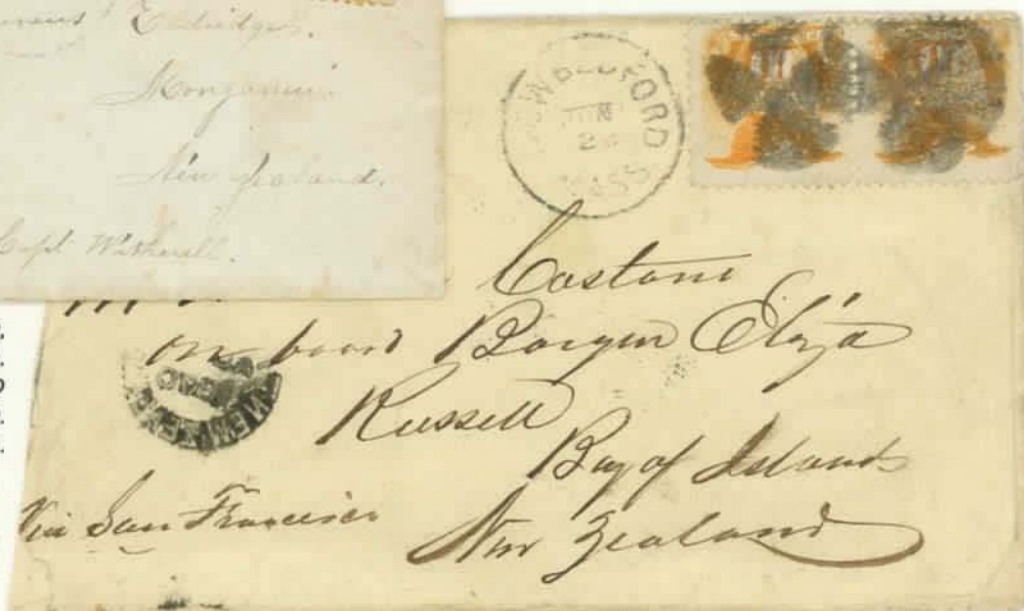 Eldridge.
Mongonui
New Zealand.
Capt Witherell.
NEW BEDFORD
JUN
MASS
Costani
on board Barque Eliza
Russell
Bay of Islands
New Zealand
Via San Francisco